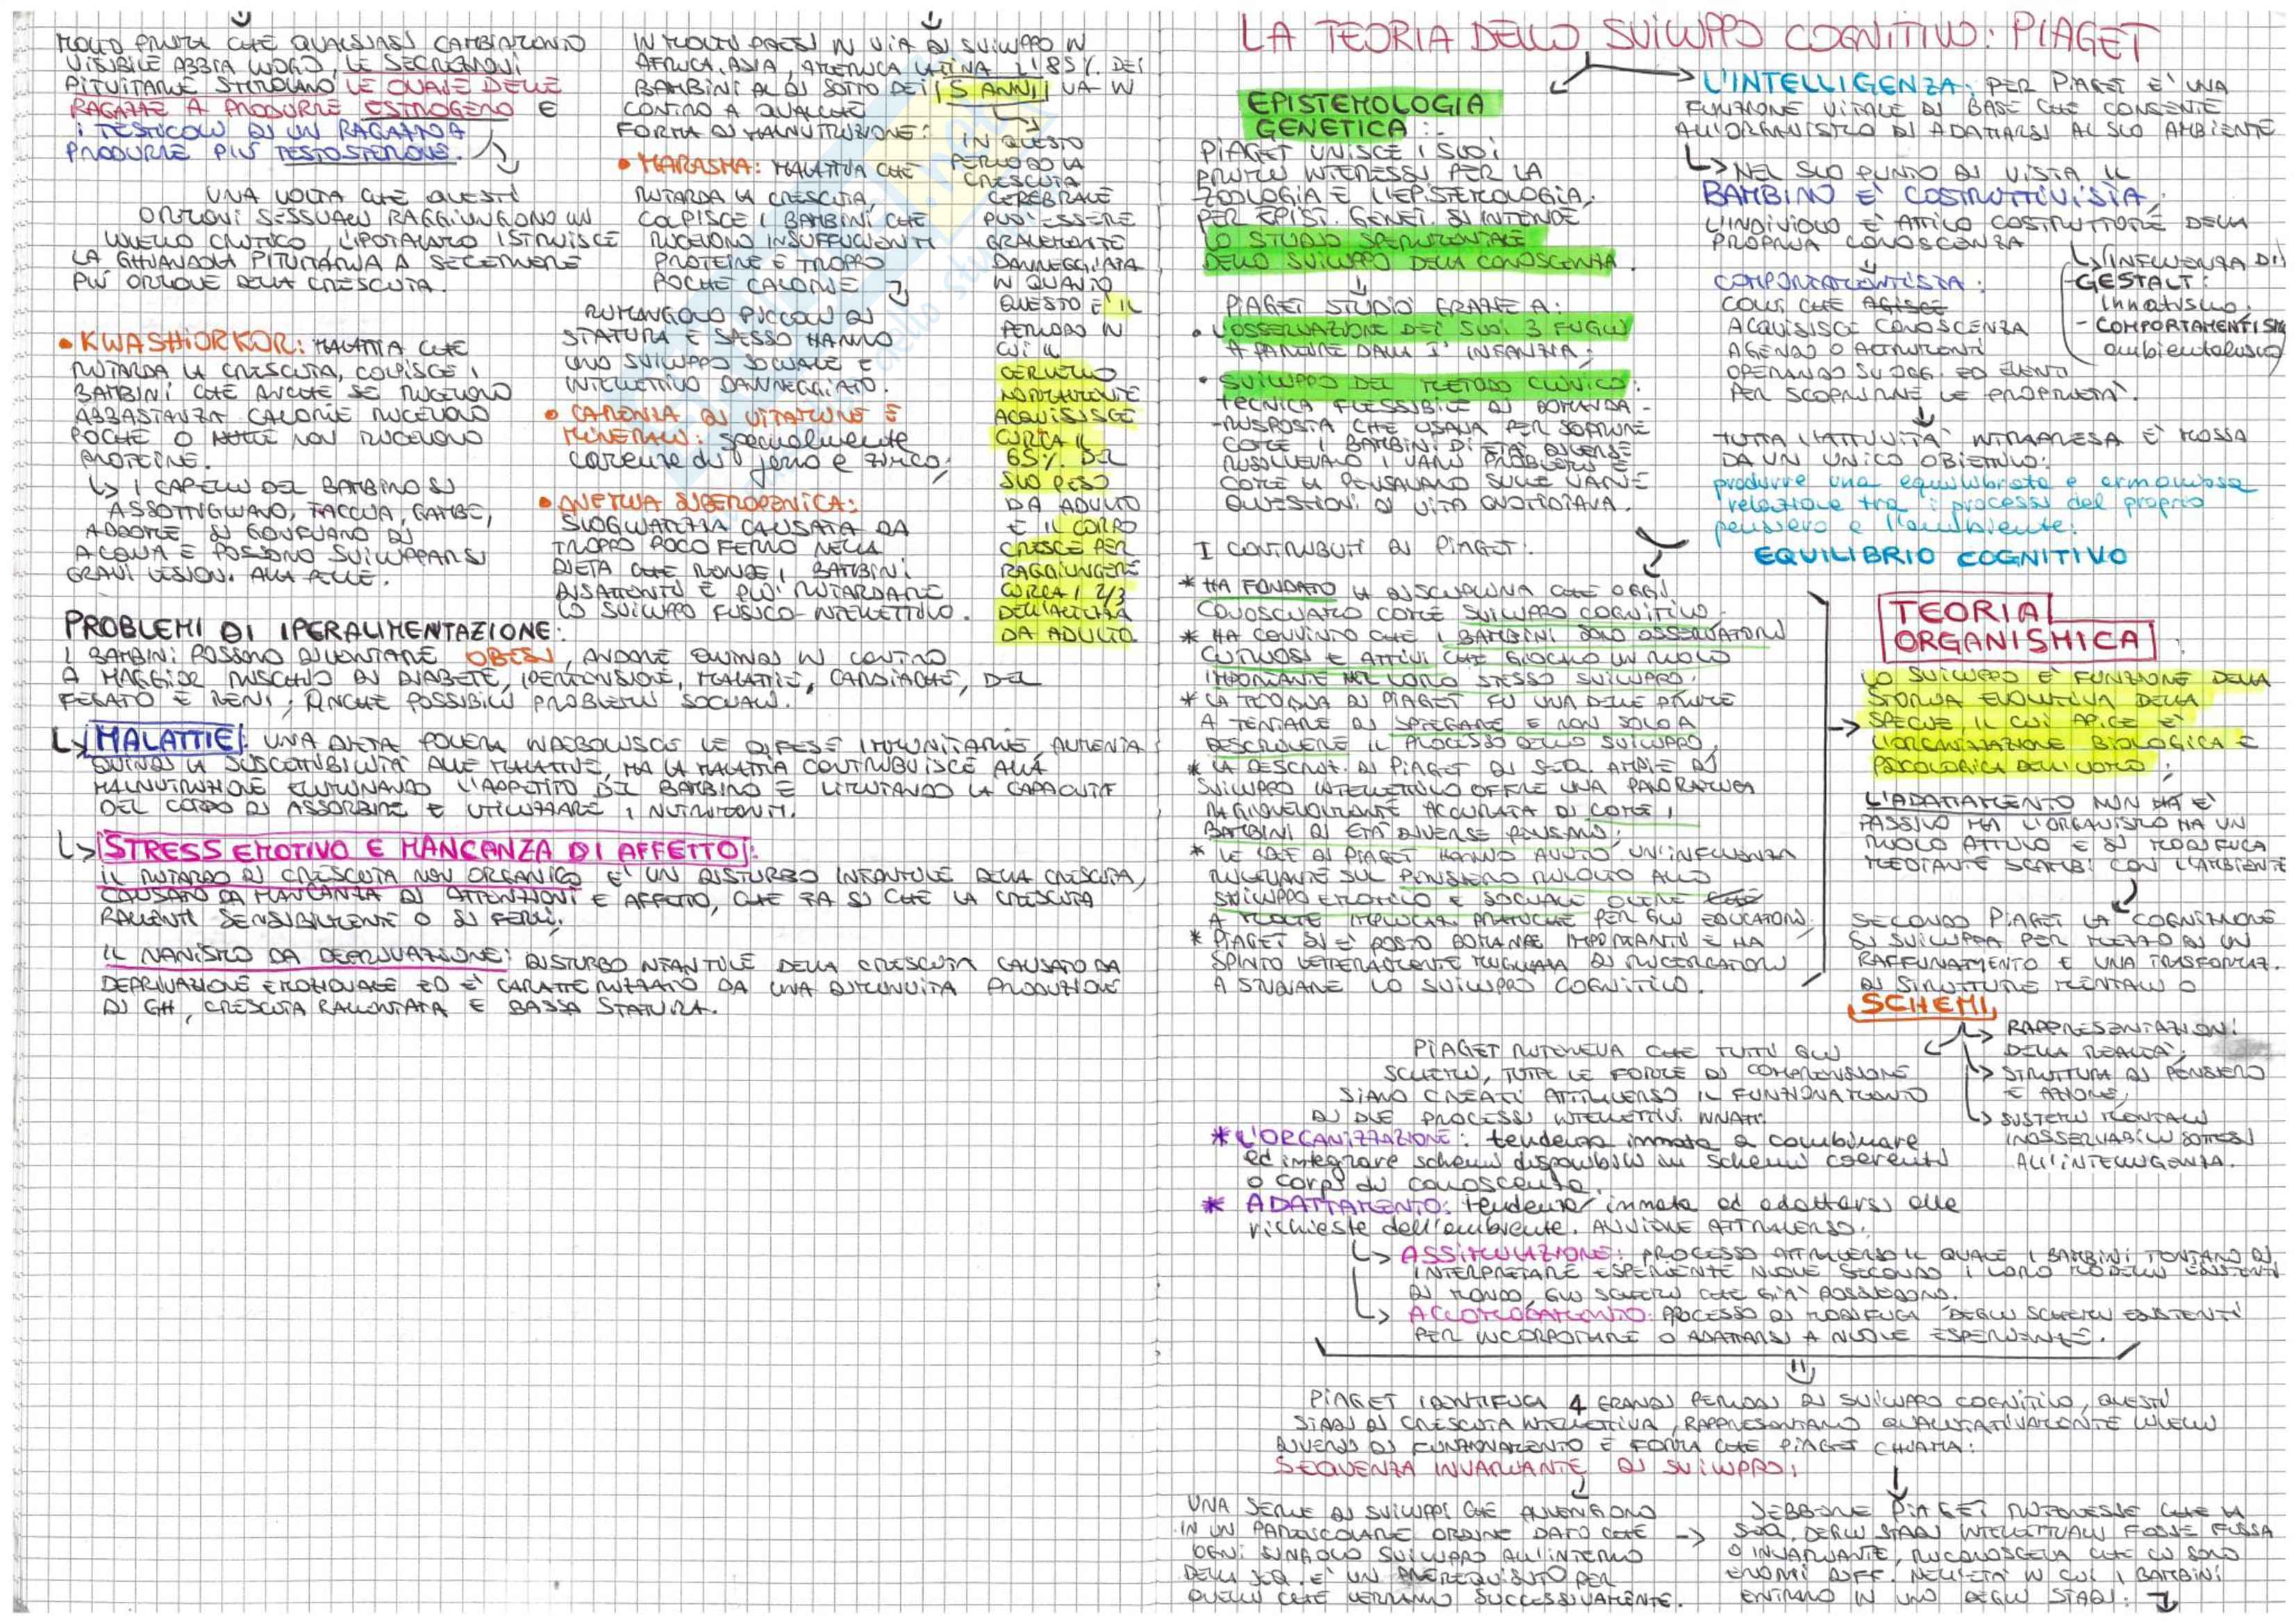 MOLTO PRIMA CHE QUALSIASI CAMBIAMENTO
VISIBILE ABBIA LUOGO, LE SECREZIONI
PITUITARIE STIMOLANO LE OVAIE DELLE
RAGAZZE A PRODURRE ESTROGENO E
I TESTICOLI DI UN RAGAZZO A
PRODURRE PIÙ TESTOSTERONE.
UNA VOLTA CHE QUESTI
ORMONI SESSUALI RAGGIUNGONO UN
LIVELLO CRITICO, L'IPOTALAMO ISTRUISCE
LA GHIANDOLA PITUITARIA A SECERNERE
PIÙ ORMONE DELLA CRESCITA.
• KWASHIORKOR: MALATTIA CHE
RITARDA LA CRESCITA, COLPISCE I
BAMBINI CHE ANCHE SE RICEVONO
ABBASTANZA CALORIE RICEVONO
POCHE O NON RICEVONO
PROTEINE.
↳ I CAPELLI DEL BAMBINO SI
ASSOTTIGLIANO, FACCIA, GAMBE,
ADDOME SI GONFIANO DI
ACQUA E POSSONO SVILUPPARSI
GRAVI LESIONI ALLA PELLE.
IN MOLTI PAESI IN VIA DI SVILUPPO IN
AFRICA, ASIA, AMERICA LATINA L'85% DEI
BAMBINI AL DI SOTTO DEI 5 ANNI VA IN
CONTRO A QUALCHE
FORMA DI MALNUTRIZIONE:
• MARASMA: MALATTIA CHE
RITARDA LA CRESCITA,
COLPISCE I BAMBINI CHE
RICEVONO INSUFFICIENTI
PROTEINE E TROPPO
POCHE CALORIE
RIMANGONO PICCOLI DI
STATURA E SPESSO HANNO
UNO SVILUPPO SOCIALE E
INTELLETTIVO DANNEGGIATO.
• CARENZA DI VITAMINE E
MINERALI: specialmente
carenze di ferro e zinco;
• ANEMIA SIDEROPENICA:
SVOGLIATEZZA CAUSATA DA
TROPPO POCO FERRO NELLA
DIETA CHE RENDE I BAMBINI
DISATTENTI E PUÒ RITARDARE
LO SVILUPPO FISICO-INTELLETTIVO.
IN QUESTO
PERIODO LA
CRESCITA
CEREBRALE
PUÒ ESSERE
GRAVEMENTE
DANNEGGIATA
IN QUANTO
QUESTO È IL
PERIODO IN
CUI IL
CERVELLO
NORMALMENTE
ACQUISISCE
CIRCA IL
65% DEL
SUO PESO
DA ADULTO
E IL CORPO
CRESCE PER
RAGGIUNGERE
CIRCA I 2/3
DELL'ALTEZZA
DA ADULTO
PROBLEMI DI IPERALIMENTAZIONE:
I BAMBINI POSSONO DIVENTARE OBESI, ANDARE QUINDI IN CONTRO
A MAGGIOR RISCHIO DI DIABETE, IPERTENSIONE, MALATTIE, CARDIACHE, DEL
FEGATO E RENI; ANCHE POSSIBILI PROBLEMI SOCIALI.
↳ MALATTIE: UNA DIETA POVERA INDEBOLISCE LE DIFESE IMMUNITARIE, AUMENTA
QUINDI LA SUSCETTIBILITÀ ALLE MALATTIE, MA LA MALATTIA CONTRIBUISCE ALLA
MALNUTRIZIONE ELIMINANDO L'APPETITO DEL BAMBINO E LIMITANDO LA CAPACITÀ
DEL CORPO DI ASSORBIRE E UTILIZZARE I NUTRIENTI.
↳ STRESS EMOTIVO E MANCANZA DI AFFETTO:
IL RITARDO DI CRESCITA NON ORGANICO È UN DISTURBO INFANTILE DELLA CRESCITA,
CAUSATO DA MANCANZA DI ATTENZIONI E AFFETTO, CHE FA SÌ CHE LA CRESCITA
RALLENTI SENSIBILMENTE O SI FERMI.
IL NANISMO DA DEPRIVAZIONE: DISTURBO INFANTILE DELLA CRESCITA CAUSATO DA
DEPRIVAZIONE EMOZIONALE ED È CARATTERIZZATO DA UNA DIMINUITA PRODUZIONE
DI GH, CRESCITA RALLENTATA E BASSA STATURA.
LA TEORIA DELLO SVILUPPO COGNITIVO: PIAGET
EPISTEMOLOGIA
GENETICA:
PIAGET UNISCE I SUOI
PRIMI INTERESSI PER LA
ZOOLOGIA E L'EPISTEMOLOGIA;
PER EPIST. GENET. SI INTENDE
LO STUDIO SPERIMENTALE
DELLO SVILUPPO DELLA CONOSCENZA.
PIAGET STUDIÒ GRAZIE A:
• L'OSSERVAZIONE DEI SUOI 3 FIGLI
A PARTIRE DALLA 1ª INFANZIA;
• SVILUPPO DEL METODO CLINICO:
TECNICA FLESSIBILE DI DOMANDA-
-RISPOSTA CHE USAVA PER SCOPRIRE
COME I BAMBINI DI ETÀ DIVERSE
RISOLVEVANO I VARI PROBLEMI E
COME LA PENSAVANO SULLE VARIE
QUESTIONI DI VITA QUOTIDIANA.
I CONTRIBUTI DI PIAGET:
* HA FONDATO LA DISCIPLINA CHE OGGI
CONOSCIAMO COME SVILUPPO COGNITIVO
* HA CONVINTO CHE I BAMBINI SONO OSSERVATORI
CURIOSI E ATTIVI CHE GIOCANO UN RUOLO
IMPORTANTE NEL LORO STESSO SVILUPPO.
* LA TEORIA DI PIAGET FU UNA DELLE PRIME
A TENTARE DI SPIEGARE E NON SOLO A
DESCRIVERE IL PROCESSO DELLO SVILUPPO,
* LA DESCRIZ. DI PIAGET DI SEQ. AMPIE DI
SVILUPPO INTELLETTIVO OFFRE UNA PANORAMICA
RAGIONEVOLMENTE ACCURATA DI COME I
BAMBINI DI ETÀ DIVERSE PENSANO;
* LE IDEE DI PIAGET HANNO AVUTO UN'INFLUENZA
RILEVANTE SUL PENSIERO RIVOLTO ALLO
SVILUPPO EMOTIVO E SOCIALE OLTRE
A MOLTE IMPLICAZ. PRATICHE PER GLI EDUCATORI;
* PIAGET SI È POSTO DOMANDE IMPORTANTI E HA
SPINTO LETTERALMENTE MIGLIAIA DI RICERCATORI
A STUDIARE LO SVILUPPO COGNITIVO.
L'INTELLIGENZA: PER PIAGET È UNA
FUNZIONE VITALE DI BASE CHE CONSENTE
ALL'ORGANISMO DI ADATTARSI AL SUO AMBIENTE
↳ NEL SUO PUNTO DI VISTA IL
BAMBINO È COSTRUTTIVISTA;
L'INDIVIDUO È ATTIVO COSTRUTTORE DELLA
PROPRIA CONOSCENZA
↳ INFLUENZA DI
GESTALT:
innatismo;
- COMPORTAMENTISM
ambientalismo
COMPORTAMENTISTA:
COLUI CHE AGISCE
ACQUISISCE CONOSCENZA
AGENDO O ALTRIMENTI
OPERANDO SU OGG. ED EVENTI
PER SCOPRIRNE LE PROPRIETÀ.
TUTTA L'ATTIVITÀ INTRAPRESA È MOSSA
DA UN UNICO OBIETTIVO:
produrre una equilibrata e armoniosa
relazione tra i processi del proprio
pensiero e l'ambiente:
EQUILIBRIO COGNITIVO
TEORIA
ORGANISMICA:
LO SVILUPPO È FUNZIONE DELLA
STORIA EVOLUTIVA DELLA
SPECIE IL CUI APICE È
L'ORGANIZZAZIONE BIOLOGICA E
PSICOLOGICA DELL'UOMO;
L'ADATTAMENTO NON HA È
PASSIVO MA L'ORGANISMO HA UN
RUOLO ATTIVO E SI MODIFICA
MEDIANTE SCAMBI CON L'AMBIENTE
SECONDO PIAGET LA COGNIZIONE
SI SVILUPPA PER MEZZO DI UN
RAFFINAMENTO E UNA TRASFORMAZ.
DI STRUTTURE MENTALI O
SCHEMI
↳ RAPPRESENTAZIONI
DELLA REALTÀ;
↳ STRUTTURA DI PENSIERO
E AZIONE,
↳ SISTEMI MENTALI
INOSSERVABILI SOTTESI
ALL'INTELLIGENZA.
PIAGET RITENEVA CHE TUTTI GLI
SCHEMI, TUTTE LE FORME DI COMPRENSIONE
SIANO CREATI ATTRAVERSO IL FUNZIONAMENTO
DI DUE PROCESSI INTELLETTIVI INNATI:
* L'ORGANIZZAZIONE: tendenza innata a combinare
ed integrare schemi disponibili in schemi coerenti
o corpi di conoscenza.
* ADATTAMENTO: tendenza innata ad adattarsi alle
richieste dell'ambiente. AVVIENE ATTRAVERSO:
↳ ASSIMILAZIONE: PROCESSO ATTRAVERSO IL QUALE I BAMBINI TENTANO DI
INTERPRETARE ESPERIENZE NUOVE SECONDO I LORO MODELLI ESISTENTI
DI MONDO, GLI SCHEMI CHE GIÀ POSSIEDONO.
↳ ACCOMODAMENTO: PROCESSO DI MODIFICA DEGLI SCHEMI ESISTENTI
PER INCORPORARE O ADATTARSI A NUOVE ESPERIENZE.
PIAGET IDENTIFICA 4 GRANDI PERIODI DI SVILUPPO COGNITIVO, QUESTI
STADI DI CRESCITA INTELLETTIVA, RAPPRESENTANO QUALITATIVAMENTE LIVELLI
DIVERSI DI FUNZIONAMENTO E FORMA CHE PIAGET CHIAMA:
SEQUENZA INVARIANTE DI SVILUPPO:
UNA SERIE DI SVILUPPI CHE AVVENGONO
IN UN PARTICOLARE ORDINE DATO CHE
OGNI SINGOLO SVILUPPO ALL'INTERNO
DELLA SEQ. È UN PREREQUISITO PER
QUELLI CHE VERRANNO SUCCESSIVAMENTE.
SEBBENE PIAGET RITENESSE CHE LA
SEQ. DEGLI STADI INTELLETTUALI FOSSE FISSA
O INVARIANTE, RICONOSCEVA CHE CI SONO
ENORMI DIFF. NELL'ETÀ IN CUI I BAMBINI
ENTRANO IN UNO DEGLI STADI.